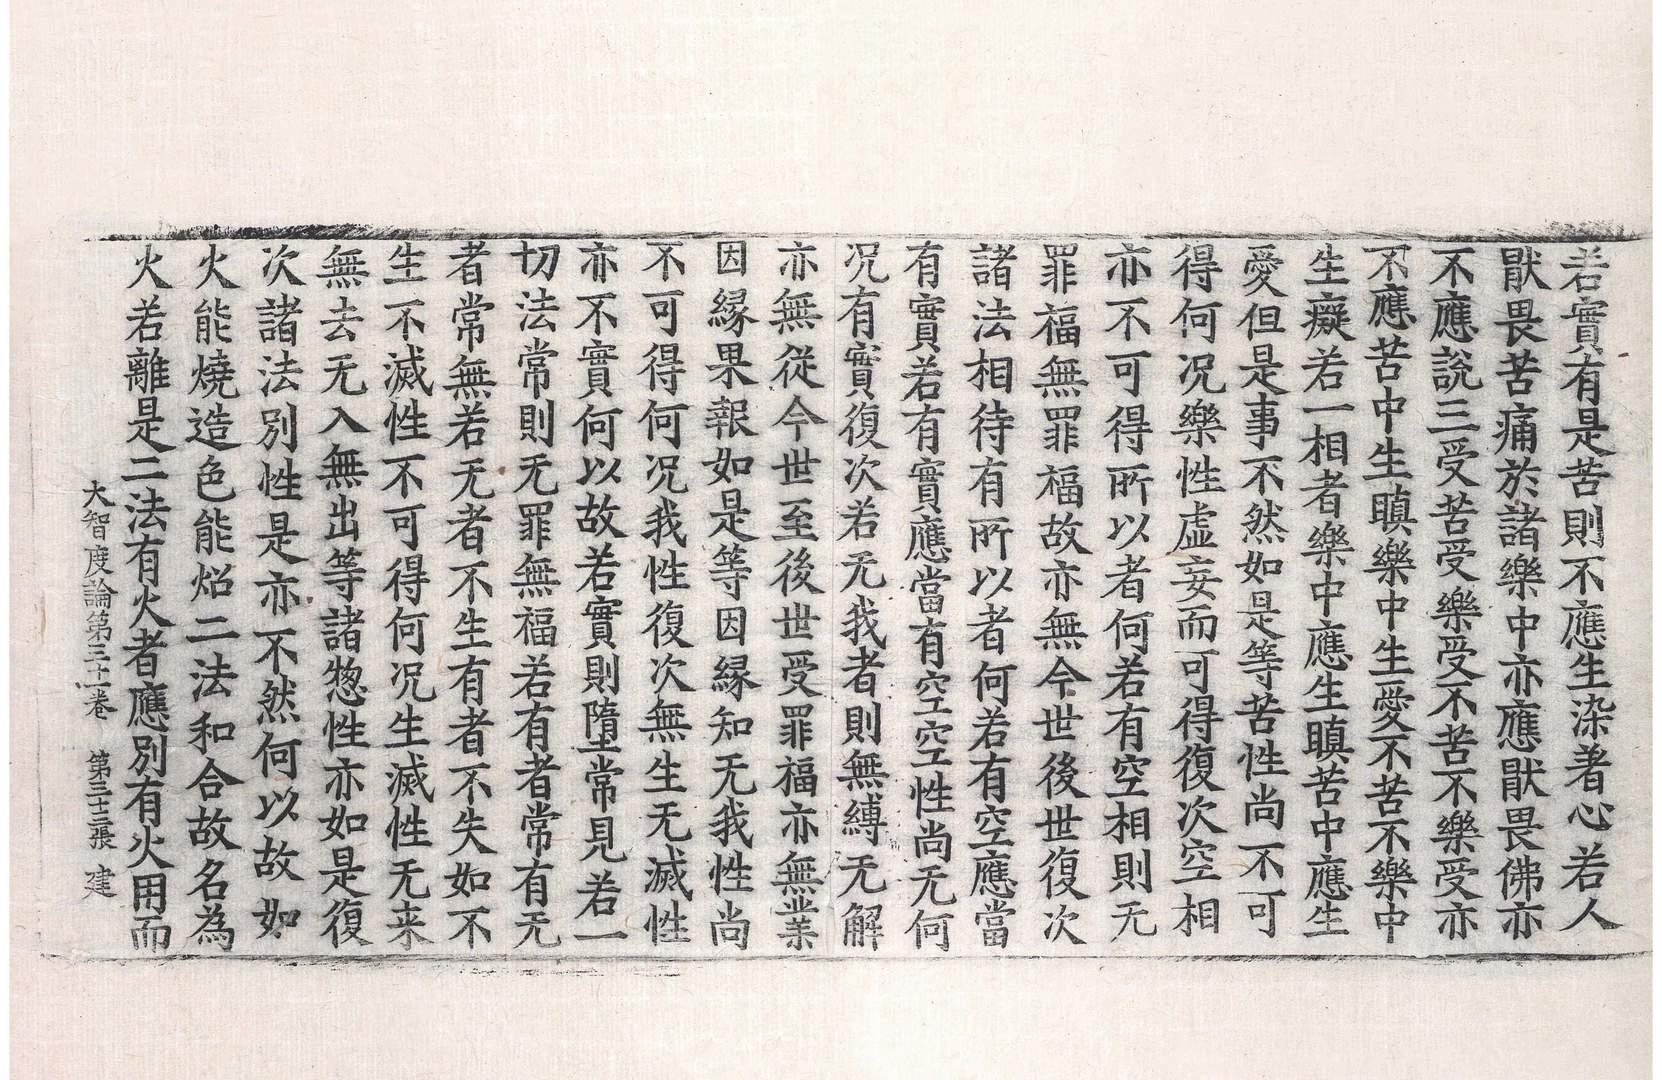 若實有是苦則不應生染著心若人
猒畏苦痛於諸樂中亦應猒畏佛亦
不應說三受苦受樂受不苦不樂受亦
不應苦中生瞋樂中生愛不苦不樂中
生癡若一相者樂中應生瞋苦中應生
愛但是事不然如是等苦性尚不可
得何况樂性虛妄而可得復次空相
亦不可得所以者何若有空相則无
罪福無罪福故亦無今世後世復次
諸法相待有所以者何若有空應當
有實若有實應當有空空性尚无何
况有實復次若无我者則無縛无解
亦無從今世至後世受罪福亦無業
因縁果報如是等因縁知无我性尚
不可得何况我性復次無生无滅性
亦不實何以故若實則墮常見若一
切法常則无罪無福若有者常有无
者常無若无者不生有者不失如不
生不滅性不可得何况生滅性无来
無去无入無出等諸惣性亦如是復
次諸法別性是亦不然何以故如
火能燒造色能炤二法和合故名為
火若離是二法有火者應別有火用而
大智度論第三十一卷 第三十三張 建